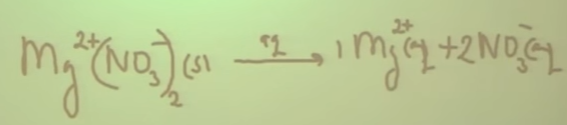 Mg²⁺(NO₃⁻)₂(s) —aq→ 1 Mg²⁺(aq + 2NO₃⁻(aq